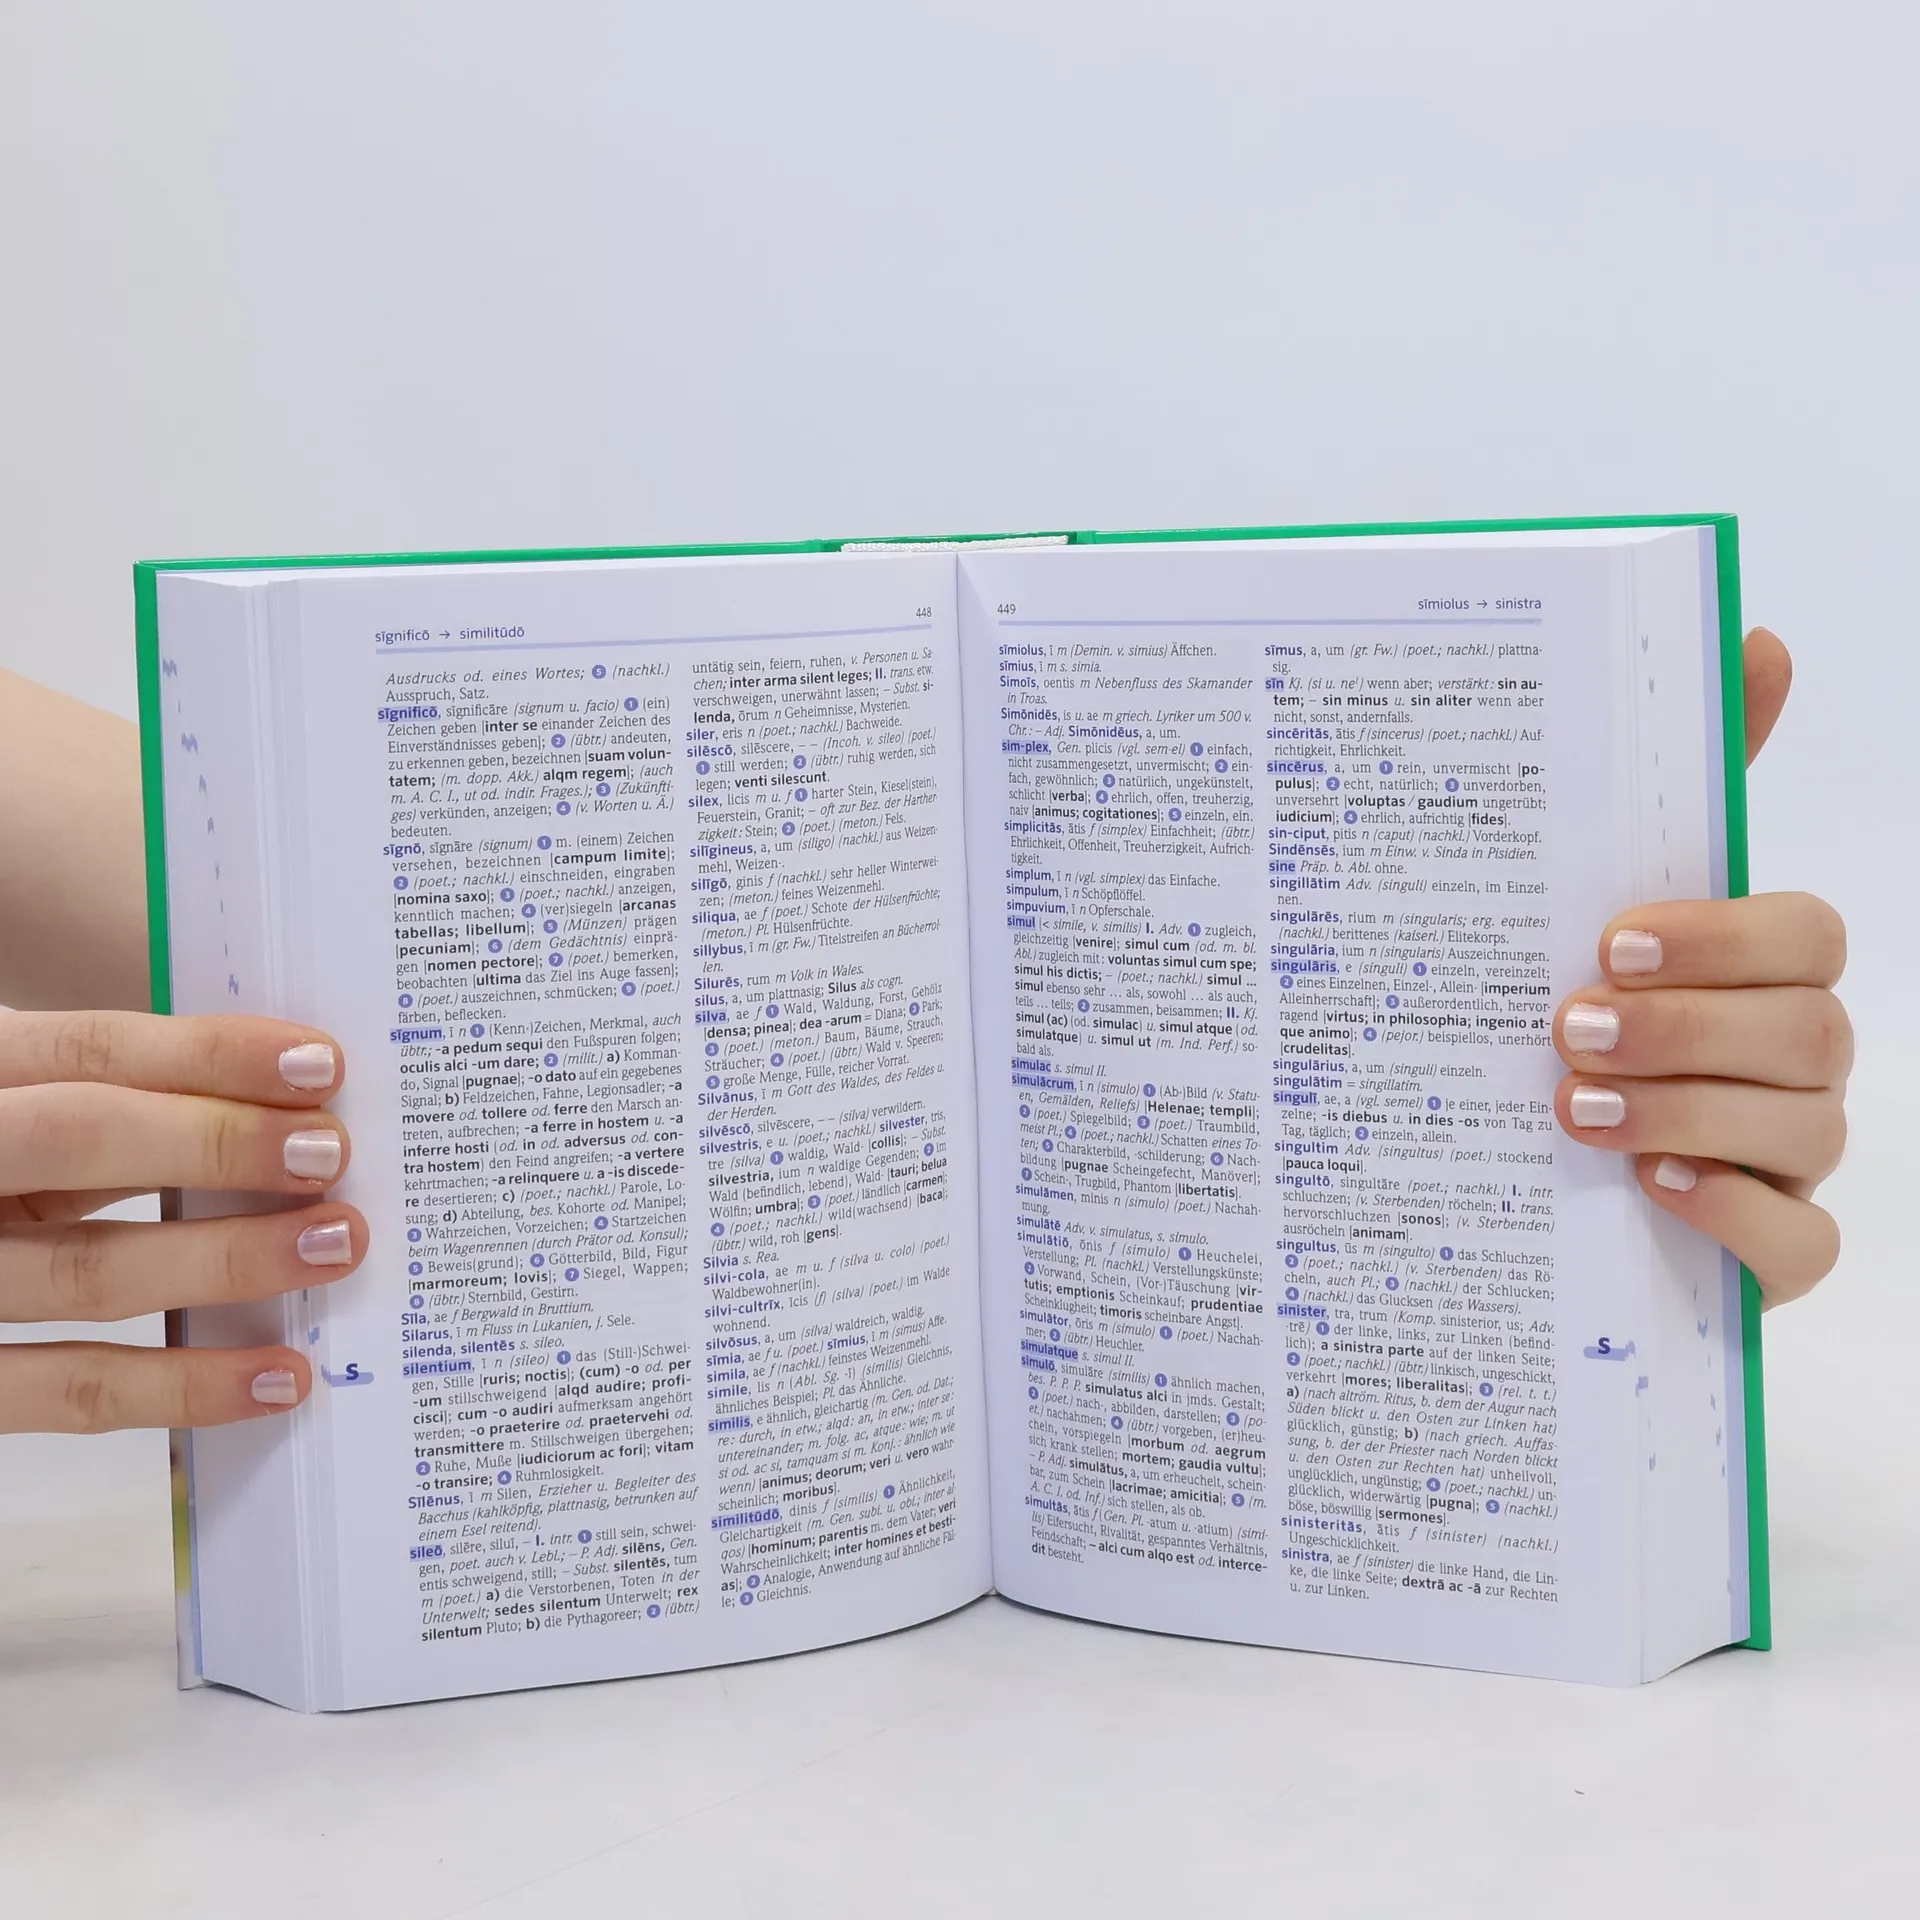 sīgnificō → similitūdō
448
Ausdrucks od. eines Wortes; 5 (nachkl.)
Ausspruch, Satz.
sīgnificō, sīgnificāre (signum u. facio) 1 (ein)
Zeichen geben [inter se einander Zeichen des
Einverständnisses geben]; 2 (übtr.) andeuten,
zu erkennen geben, bezeichnen [suam volun-
tatem; (m. dopp. Akk.) alqm regem]; (auch
m. A. C. I., ut od. indir. Frages.); 3 (Zukünfti-
ges) verkünden, anzeigen; 4 (v. Worten u. Ä.)
bedeuten.
sīgnō, sīgnāre (signum) 1 m. (einem) Zeichen
versehen, bezeichnen [campum limite];
2 (poet.; nachkl.) einschneiden, eingraben
[nomina saxo]; 3 (poet.; nachkl.) anzeigen,
kenntlich machen; 4 (ver)siegeln [arcanas
tabellas; libellum]; 5 (Münzen) prägen
[pecuniam]; 6 (dem Gedächtnis) einprä-
gen [nomen pectore]; 7 (poet.) bemerken,
beobachten [ultima das Ziel ins Auge fassen];
8 (poet.) auszeichnen, schmücken; 9 (poet.)
färben, beflecken.
sīgnum, ī n 1 (Kenn-)Zeichen, Merkmal, auch
übtr.; -a pedum sequi den Fußspuren folgen;
oculis alci -um dare; 2 (milit.) a) Komman-
do, Signal [pugnae]; -o dato auf ein gegebenes
Signal; b) Feldzeichen, Fahne, Legionsadler; -a
movere od. tollere od. ferre den Marsch an-
treten, aufbrechen; -a ferre in hostem u. -a
inferre hosti (od. in od. adversus od. con-
tra hostem) den Feind angreifen; -a vertere
kehrtmachen; -a relinquere u. a -is discede-
re desertieren; c) (poet.; nachkl.) Parole, Lo-
sung; d) Abteilung, bes. Kohorte od. Manipel;
3 Wahrzeichen, Vorzeichen; 4 Startzeichen
beim Wagenrennen (durch Prätor od. Konsul);
5 Beweis(grund); 6 Götterbild, Bild, Figur
[marmoreum; Iovis]; 7 Siegel, Wappen;
8 (übtr.) Sternbild, Gestirn.
Sīla, ae f Bergwald in Bruttium.
Silarus, ī m Fluss in Lukanien, j. Sele.
silenda, silentēs s. sileo.
silentium, ī n (sileo) 1 das (Still-)Schwei-
gen, Stille [ruris; noctis]; (cum) -o od. per
-um stillschweigend [alqd audire; profi-
cisci]; cum -o audiri aufmerksam angehört
werden; -o praeterire od. praetervehi od.
transmittere m. Stillschweigen übergehen;
2 Ruhe, Muße [iudiciorum ac fori]; vitam
-o transire; 4 Ruhmlosigkeit.
Sīlēnus, ī m Silen, Erzieher u. Begleiter des
Bacchus (kahlköpfig, plattnasig, betrunken auf
einem Esel reitend).
sileō, silēre, siluī, – I. intr. 1 still sein, schwei-
gen, poet. auch v. Lebl.; – P. Adj. silēns, Gen.
entis schweigend, still; – Subst. silentēs, tum
m (poet.) a) die Verstorbenen, Toten in der
Unterwelt; sedes silentum Unterwelt; rex
silentum Pluto; b) die Pythagoreer; 2 (übtr.)
untätig sein, feiern, ruhen, v. Personen u. Sa-
chen; inter arma silent leges; II. trans. etw.
verschweigen, unerwähnt lassen; – Subst. si-
lenda, ōrum n Geheimnisse, Mysterien.
siler, eris n (poet.; nachkl.) Bachweide.
silēscō, silēscere, – – (Incoh. v. sileo) (poet.)
1 still werden; 2 (übtr.) ruhig werden, sich
legen; venti silescunt.
silex, licis m u. f 1 harter Stein, Kiesel(stein),
Feuerstein, Granit; – oft zur Bez. der Harther-
zigkeit: Stein; 2 (poet.) (meton.) Fels.
silīgineus, a, um (siligo) (nachkl.) aus Weizen-
mehl, Weizen-.
silīgō, ginis f (nachkl.) sehr heller Winterwei-
zen; (meton.) feines Weizenmehl.
siliqua, ae f (poet.) Schote der Hülsenfrüchte;
(meton.) Pl. Hülsenfrüchte.
sillybus, ī m (gr. Fw.) Titelstreifen an Bücherrol-
len.
Silurēs, rum m Volk in Wales.
silus, a, um plattnasig; Silus als cogn.
silva, ae f 1 Wald, Waldung, Forst, Gehölz
[densa; pinea]; dea -arum = Diana; 2 Park;
3 (poet.) (meton.) Baum, Bäume, Strauch,
Sträucher; 4 (poet.) (übtr.) Wald v. Speeren;
5 große Menge, Fülle, reicher Vorrat.
Silvānus, ī m Gott des Waldes, des Feldes u.
der Herden.
silvēscō, silvēscere, – – (silva) verwildern.
silvestris, e u. (poet.; nachkl.) silvester, tris,
tre (silva) 1 waldig, Wald- [collis]; – Subst.
silvestria, ium n waldige Gegenden; 2 im
Wald (befindlich, lebend), Wald- [tauri; belua
Wölfin; umbra]; 3 (poet.) ländlich [carmen];
4 (poet.; nachkl.) wild(wachsend) [baca];
(übtr.) wild, roh [gens].
Silvia s. Rea.
silvi-cola, ae m u. f (silva u. colo) (poet.)
Waldbewohner(in).
silvi-cultrīx, īcis (f) (silva) (poet.) im Walde
wohnend.
silvōsus, a, um (silva) waldreich, waldig.
sīmia, ae f u. (poet.) sīmius, ī m (simus) Affe.
simila, ae f (nachkl.) feinstes Weizenmehl.
simile, lis n (Abl. Sg. -ī) (similis) Gleichnis,
ähnliches Beispiel; Pl. das Ähnliche.
similis, e ähnlich, gleichartig (m. Gen. od. Dat.;
re: durch, in etw.; alqd: an, in etw.; inter se:
untereinander; m. folg. ac, atque: wie; m. ut
si od. ac si, tamquam si m. Konj.: ähnlich wie
wenn) [animus; deorum; veri u. vero wahr-
scheinlich; moribus].
similitūdō, dinis f (similis) 1 Ähnlichkeit,
Gleichartigkeit (m. Gen. subi. u. obi.; inter al-
qos) [hominum; parentis m. dem Vater; veri
Wahrscheinlichkeit; inter homines et besti-
as]; 2 Analogie, Anwendung auf ähnliche Fäl-
le; 3 Gleichnis.
S
449
sīmiolus → sinistra
sīmiolus, ī m (Demin. v. simius) Äffchen.
sīmius, ī m s. simia.
Simoīs, oentis m Nebenfluss des Skamander
in Troas.
Simōnidēs, is u. ae m griech. Lyriker um 500 v.
Chr.; – Adj. Simōnidēus, a, um.
sim-plex, Gen. plicis (vgl. sem-el) 1 einfach,
nicht zusammengesetzt, unvermischt; 2 ein-
fach, gewöhnlich; 3 natürlich, ungekünstelt,
schlicht [verba]; 4 ehrlich, offen, treuherzig,
naiv [animus; cogitationes]; 5 einzeln, ein.
simplicitās, ātis f (simplex) Einfachheit; (übtr.)
Ehrlichkeit, Offenheit, Treuherzigkeit, Aufrich-
tigkeit.
simplum, ī n (vgl. simplex) das Einfache.
simpulum, ī n Schöpflöffel.
simpuvium, ī n Opferschale.
simul [< simile, v. similis) I. Adv. 1 zugleich,
gleichzeitig [venire]; simul cum (od. m. bl.
Abl.) zugleich mit: voluntas simul cum spe;
simul his dictis; – (poet.; nachkl.) simul ...
simul ebenso sehr ... als, sowohl ... als auch,
teils ... teils; 2 zusammen, beisammen; II. Kj.
simul (ac) (od. simulac) u. simul atque (od.
simulatque) u. simul ut (m. Ind. Perf.) so-
bald als.
simulac s. simul II.
simulācrum, ī n (simulo) 1 (Ab-)Bild (v. Statu-
en, Gemälden, Reliefs) [Helenae; templi];
2 (poet.) Spiegelbild; 3 (poet.) Traumbild,
meist Pl.; 4 (poet.; nachkl.) Schatten eines To-
ten; 5 Charakterbild, -schilderung; 6 Nach-
bildung [pugnae Scheingefecht, Manöver];
7 Schein-, Trugbild, Phantom [libertatis].
simulāmen, minis n (simulo) (poet.) Nachah-
mung.
simulātē Adv. v. simulatus, s. simulo.
simulātiō, ōnis f (simulo) 1 Heuchelei,
Verstellung; Pl. (nachkl.) Verstellungskünste;
2 Vorwand, Schein, (Vor-)Täuschung [vir-
tutis; emptionis Scheinkauf; prudentiae
Scheinklugheit; timoris scheinbare Angst].
simulātor, ōris m (simulo) 1 (poet.) Nachah-
mer; 2 (übtr.) Heuchler.
simulatque s. simul II.
simulō, simulāre (similis) 1 ähnlich machen,
bes. P. P. P. simulatus alci in jmds. Gestalt;
2 (poet.) nach-, abbilden, darstellen; 3 (po-
et.) nachahmen; 4 (übtr.) vorgeben, (er)heu-
cheln, vorspiegeln [morbum od. aegrum
sich krank stellen; mortem; gaudia vultu];
– P. Adj. simulātus, a, um erheuchelt, schein-
bar, zum Schein [lacrimae; amicitia]; 5 (m.
A. C. I. od. Inf.) sich stellen, als ob.
simultās, ātis f (Gen. Pl. -atum u. -atium) (simi-
lis) Eifersucht, Rivalität, gespanntes Verhältnis,
Feindschaft; – alci cum alqo est od. interce-
dit besteht.
sīmus, a, um (gr. Fw.) (poet.; nachkl.) plattna-
sig.
sīn Kj. (si u. ne¹) wenn aber; verstärkt: sin au-
tem; – sin minus u. sin aliter wenn aber
nicht, sonst, andernfalls.
sincēritās, ātis f (sincerus) (poet.; nachkl.) Auf-
richtigkeit, Ehrlichkeit.
sincērus, a, um 1 rein, unvermischt [po-
pulus]; 2 echt, natürlich; 3 unverdorben,
unversehrt [voluptas / gaudium ungetrübt;
iudicium]; 4 ehrlich, aufrichtig [fides].
sin-ciput, pitis n (caput) (nachkl.) Vorderkopf.
Sindēnsēs, ium m Einw. v. Sinda in Pisidien.
sine Präp. b. Abl. ohne.
singillātim Adv. (singuli) einzeln, im Einzel-
nen.
singulārēs, rium m (singularis; erg. equites)
(nachkl.) berittenes (kaiserl.) Elitekorps.
singulāria, ium n (singularis) Auszeichnungen.
singulāris, e (singuli) 1 einzeln, vereinzelt;
2 eines Einzelnen, Einzel-, Allein- [imperium
Alleinherrschaft]; 3 außerordentlich, hervor-
ragend [virtus; in philosophia; ingenio at-
que animo]; 4 (pejor.) beispiellos, unerhört
[crudelitas].
singulārius, a, um (singuli) einzeln.
singulātim = singillatim.
singulī, ae, a (vgl. semel) 1 je einer, jeder Ein-
zelne; -is diebus u. in dies -os von Tag zu
Tag, täglich; 2 einzeln, allein.
singultim Adv. (singultus) (poet.) stockend
[pauca loqui].
singultō, singultāre (poet.; nachkl.) I. intr.
schluchzen; (v. Sterbenden) röcheln; II. trans.
hervorschluchzen [sonos]; (v. Sterbenden)
ausröcheln [animam].
singultus, ūs m (singulto) 1 das Schluchzen;
2 (poet.; nachkl.) (v. Sterbenden) das Rö-
cheln, auch Pl.; 3 (nachkl.) der Schlucken;
4 (nachkl.) das Glucksen (des Wassers).
sinister, tra, trum (Komp. sinisterior, us; Adv.
-trē) 1 der linke, links, zur Linken (befind-
lich); a sinistra parte auf der linken Seite;
2 (poet.; nachkl.) (übtr.) linkisch, ungeschickt,
verkehrt [mores; liberalitas]; 3 (rel. t. t.)
a) (nach altröm. Ritus, b. dem der Augur nach
Süden blickt u. den Osten zur Linken hat)
glücklich, günstig; b) (nach griech. Auffas-
sung, b. der der Priester nach Norden blickt
u. den Osten zur Rechten hat) unheilvoll,
unglücklich, ungünstig; 4 (poet.; nachkl.) un-
glücklich, widerwärtig [pugna]; 5 (nachkl.)
böse, böswillig [sermones].
sinisteritās, ātis f (sinister) (nachkl.)
Ungeschicklichkeit.
sinistra, ae f (sinister) die linke Hand, die Lin-
ke, die linke Seite; dextrā ac -ā zur Rechten
u. zur Linken.
S